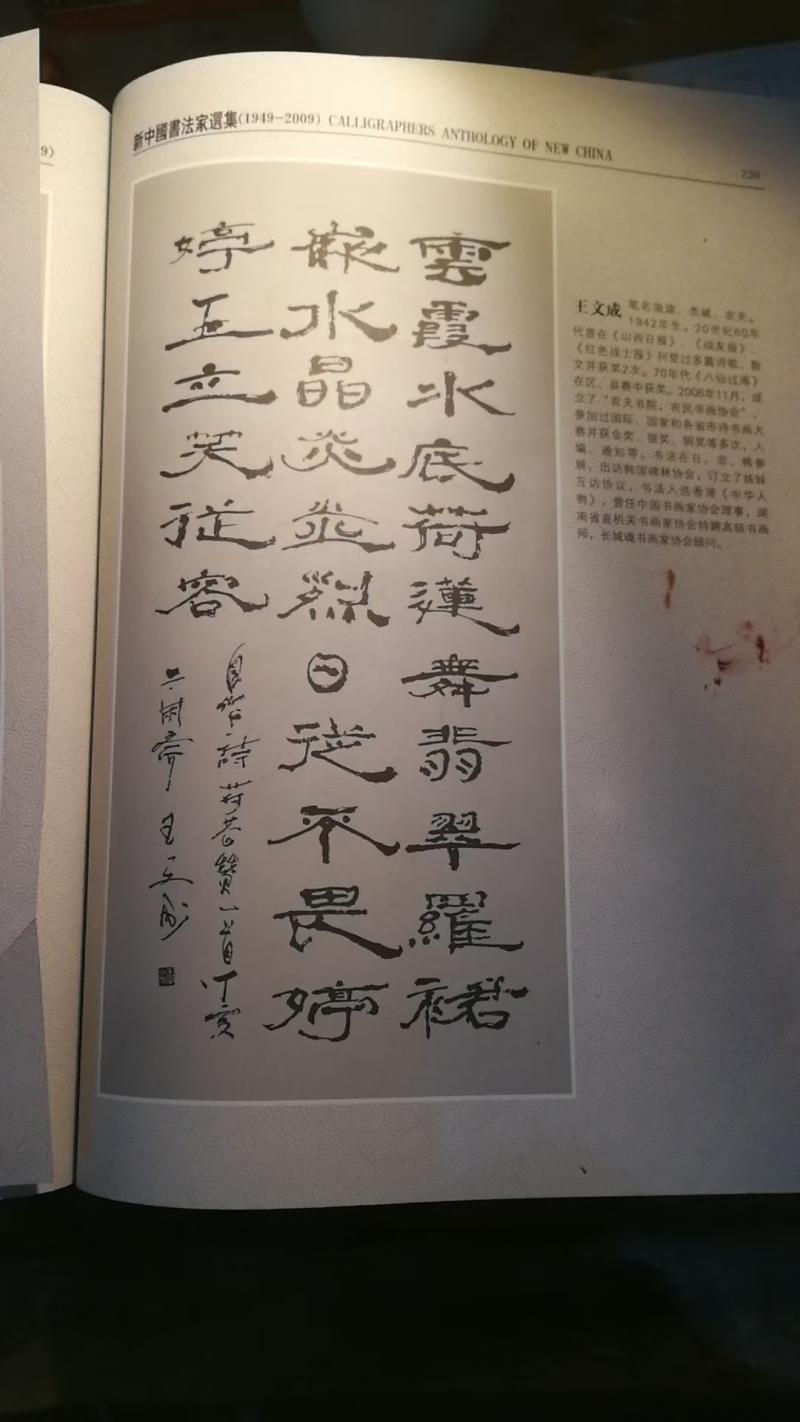 9)
新中國書法家選集(1949-2009) CALLIGRAPHERS ANTHOLOGY OF NEW CHINA
239
雲霞水底荷蓮舞翡翠羅裙
嵌水晶炎炎烈日從不畏婷
婷玉立笑從容
自作詩荷香贊一首丁亥
王文成
王文成 笔名海滨、杰斌、农夫。
1942年生。20世纪60年
代曾在《山西日报》、《战友报》、
《红色战士报》刊登过多篇诗歌、散
文并获奖2次。70年代《八仙过海》
在区、县赛中获奖。2006年11月，成
立了“农夫书院，农民书画协会”，
参加过国际、国家和各省市诗书画大
赛并获金奖、银奖、铜奖等多次，入
编、通知等。书法在日、韩参
展，出访韩国碑林协会，订立了姊妹
互访协议，书法入选香港《中华人
物》，曾任中国书画家协会理事，湖
南省直机关书画家协会特聘高级书画
师，长城魂书画家协会顾问。